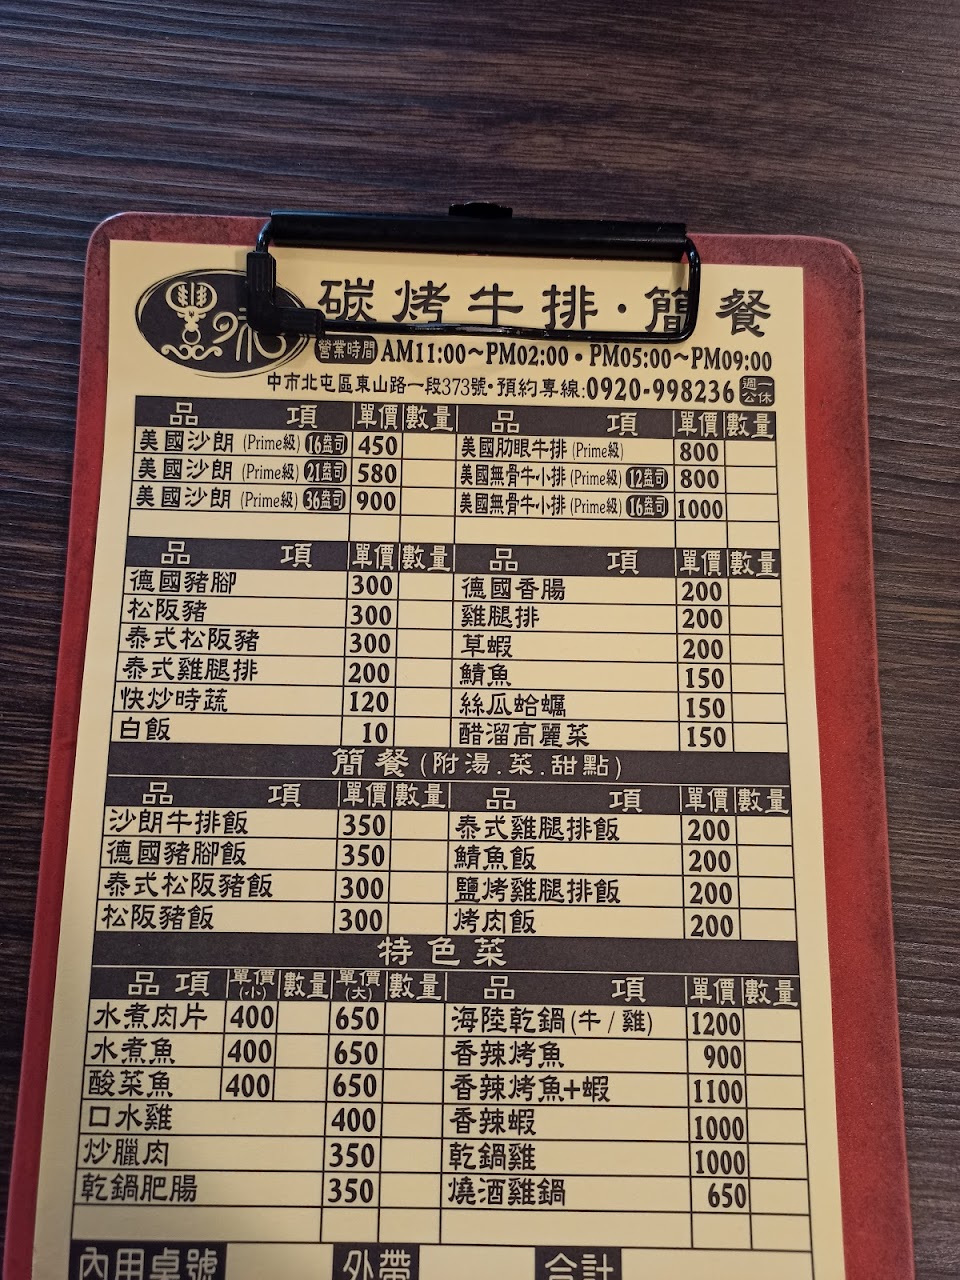 碳烤牛排·簡餐
味
營業時間 AM11:00~PM02:00·PM05:00~PM09:00
中市北屯區東山路一段373號·預約專線:0920-998236 週一公休
品項 單價 數量 品項 單價 數量
美國沙朗(Prime級) 16盎司 450 美國肋眼牛排(Prime級) 800
美國沙朗(Prime級) 21盎司 580 美國無骨牛小排(Prime級) 12盎司 800
美國沙朗(Prime級) 36盎司 900 美國無骨牛小排(Prime級) 16盎司 1000
品項 單價 數量 品項 單價 數量
德國豬腳 300 德國香腸 200
松阪豬 300 雞腿排 200
泰式松阪豬 300 草蝦 200
泰式雞腿排 200 鯖魚 150
快炒時蔬 120 絲瓜蛤蠣 150
白飯 10 醋溜高麗菜 150
簡餐(附湯.菜.甜點)
品項 單價 數量 品項 單價 數量
沙朗牛排飯 350 泰式雞腿排飯 200
德國豬腳飯 350 鯖魚飯 200
泰式松阪豬飯 300 鹽烤雞腿排飯 200
松阪豬飯 300 烤肉飯 200
特色菜
品項 單價(小) 數量 單價(大) 數量 品項 單價 數量
水煮肉片 400 650 海陸乾鍋(牛/雞) 1200
水煮魚 400 650 香辣烤魚 900
酸菜魚 400 650 香辣烤魚+蝦 1100
口水雞 400 香辣蝦 1000
炒臘肉 350 乾鍋雞 1000
乾鍋肥腸 350 燒酒雞鍋 650
內用桌號 外帶 合計